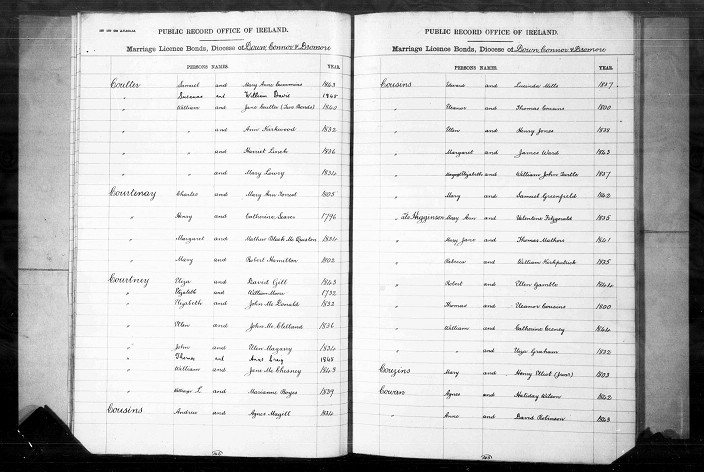 PUBLIC RECORD OFFICE OF IRELAND.
Marriage Licence Bonds, Diocese of Down Connor & Dromore
PERSONS NAMES. YEAR.
Coulter Samuel and Mary Anne Cummins 1843
" Susanna and William Davis 1845
" William and Jane Coulter (Two Bonds) 1840
" " and Ann Kirkwood 1832
" " and Harriet Linch 1836
" " and Mary Lowry 1834
Courtenay Charles and Mary Ann Forrest 1805
" Henry and Catherine Seares 1796
" Margaret and Mathew Black Mc Quiston 1834
" Mary and Robert Hamilton 1802
Courtney Eliza and David Gill 1843
" Elizabeth and William Moore 1732
" Elizabeth and John Mc Donald 1832
" Ellen and John Mc Clelland 1836
" John and Ellen Magany 1834
" Thomas and Anne Greg 1845
" William and Jane Mc Chesney 1843
" L and Marianne Boyes 1839
Cousins Andrew and Agnes Magill 1834
PUBLIC RECORD OFFICE OF IRELAND.
Marriage Licence Bonds, Diocese of Down Connor & Dromore
PERSONS NAMES. YEAR.
Cousins Edward and Lucinda Mills 1837
" Eleanor and Thomas Cousins 1800
" Ellen and Henry Jones 1838
" Margaret and James Ward 1843
" Margt Elizabeth and William John Turtle 1837
" Mary and Samuel Greenfield 1842
" als Higginson Mary Ann and Valentine Fitzgerald 1835
" Mary Jane and Thomas Mathers 1841
" Rebecca and William Kirkpatrick 1835
" Robert and Ellen Gamble 1844
" Thomas and Eleanor Cousins 1800
" William and Catherine Creney 1844
" " and Eliza Graham 1832
Couzins Mary and Henry Elliot (Junr) 1803
Cowan Agnes and Haliday Wilson 1842
" Anne and David Robinson 1843